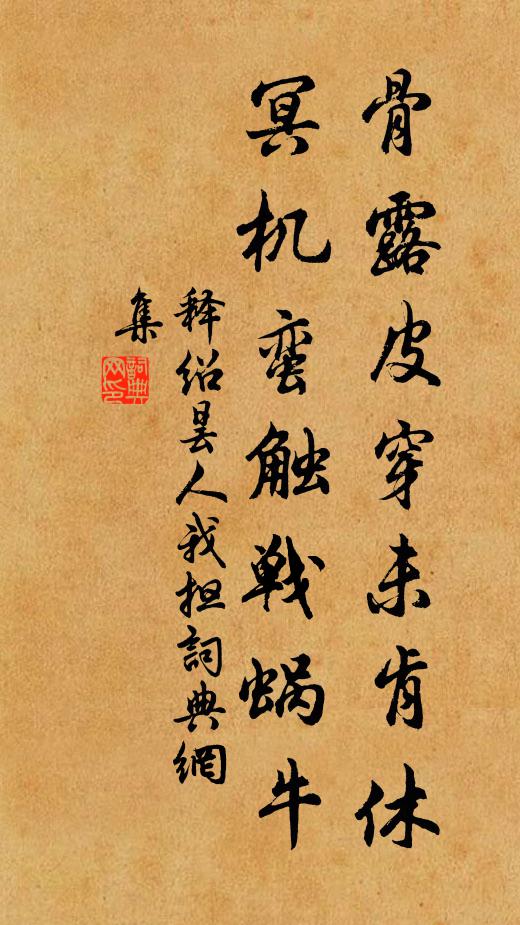 骨露皮穿未肯休
冥机蛮触战蜗牛
释绍昙人我担詞典網
集
詞典
网印